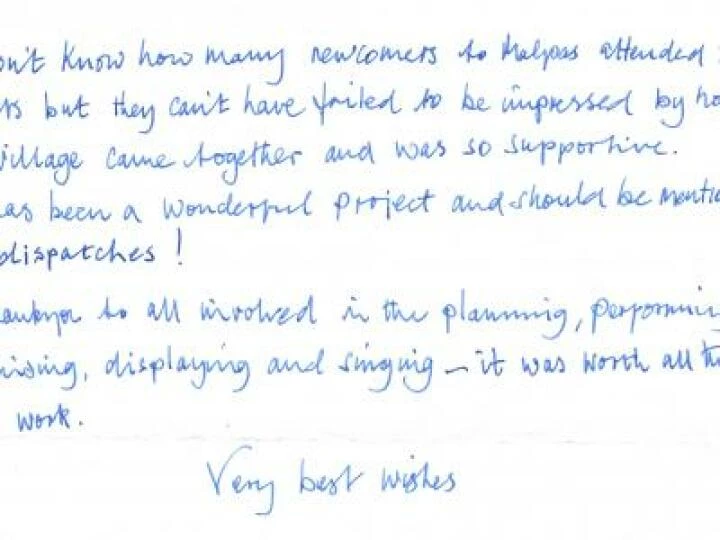 on't know how many newcomers to Malpas attended
ts but they can't have failed to be impressed by ho
village came together and was so supportive.
as been a wonderful project and should be mentio
dispatches!
ankyou to all involved in the planning, performing
nising, displaying and singing - it was worth all th
work.
Very best wishes